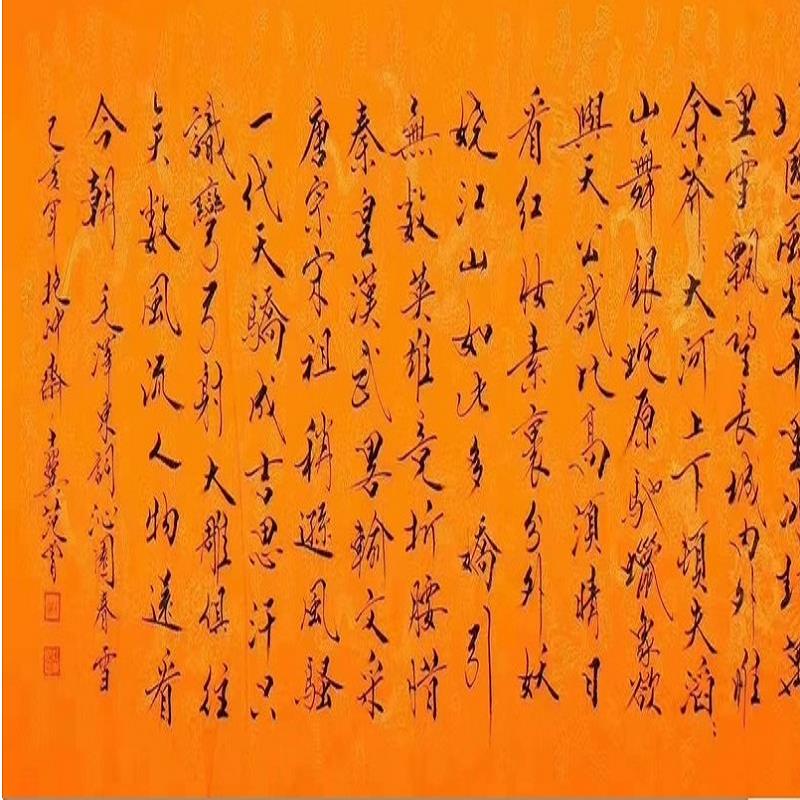 北國風光千里冰封萬
里雪飄望長城内外惟
余莽〻大河上下頓失滔〻
山舞銀蛇原馳蠟象欲
與天公試比高須晴日
看紅妝素裹分外妖
嬈江山如此多嬌引
無數英雄竞折腰惜
秦皇漢武畧輸文采
唐宗宋祖稍遜風騷
一代天驕成吉思汗只
識彎弓射大雕俱往
矣數風流人物還看
今朝 毛澤東詞沁園春雪
己亥年抱冲齋